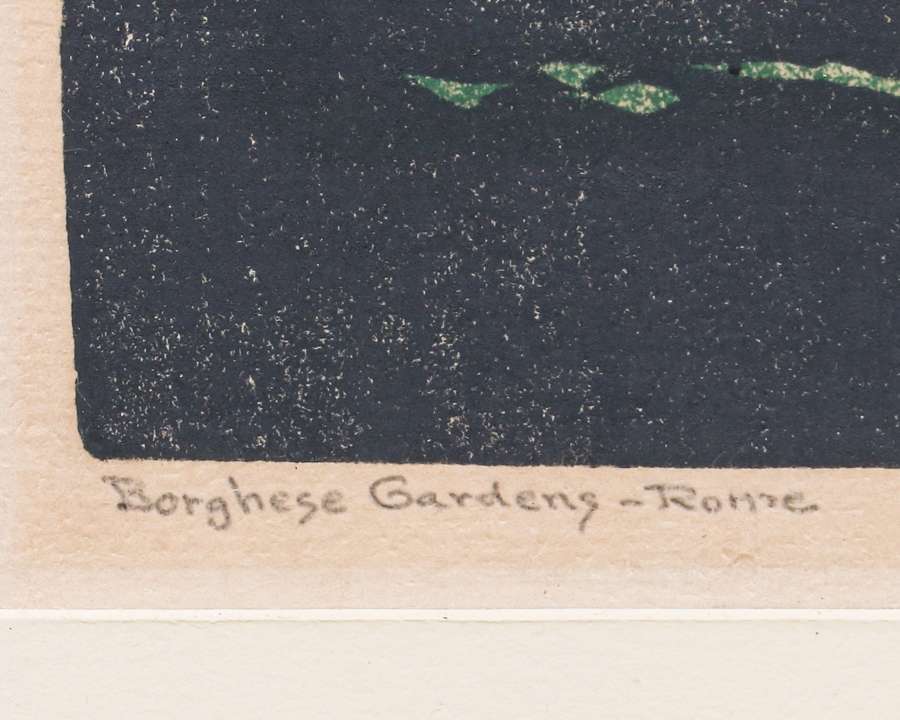 Borghese Gardens - Rome